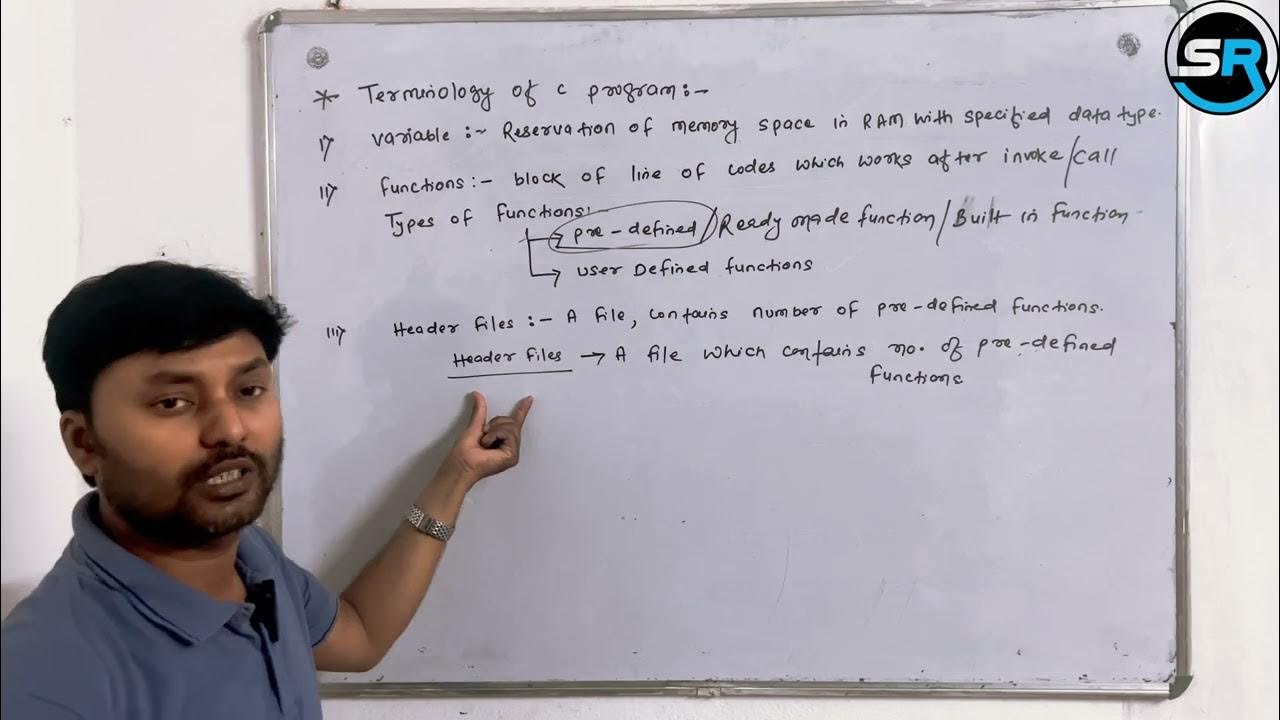 SR
* Terminology of C program:-
i) Variable :- Reservation of memory space in RAM with specified data type.
ii) Functions :- block of line of codes which works after invoke/call
Types of functions:-
pre-defined/Ready made function/Built in function-
user Defined functions
iii) Header Files :- A file, contains number of pre-defined functions.
Header files → A file which contains no. of pre-defined
functions